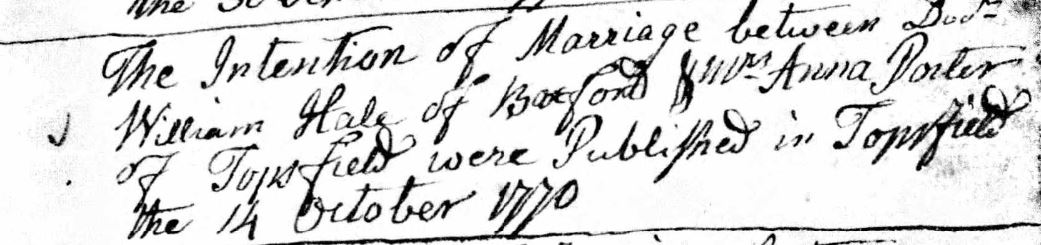 the
The Intention of Marriage between Doctr
William Hale of Boxford & Mrs Anna Porter
of Topsfield were Published in Topsfield
the 14 October 1770